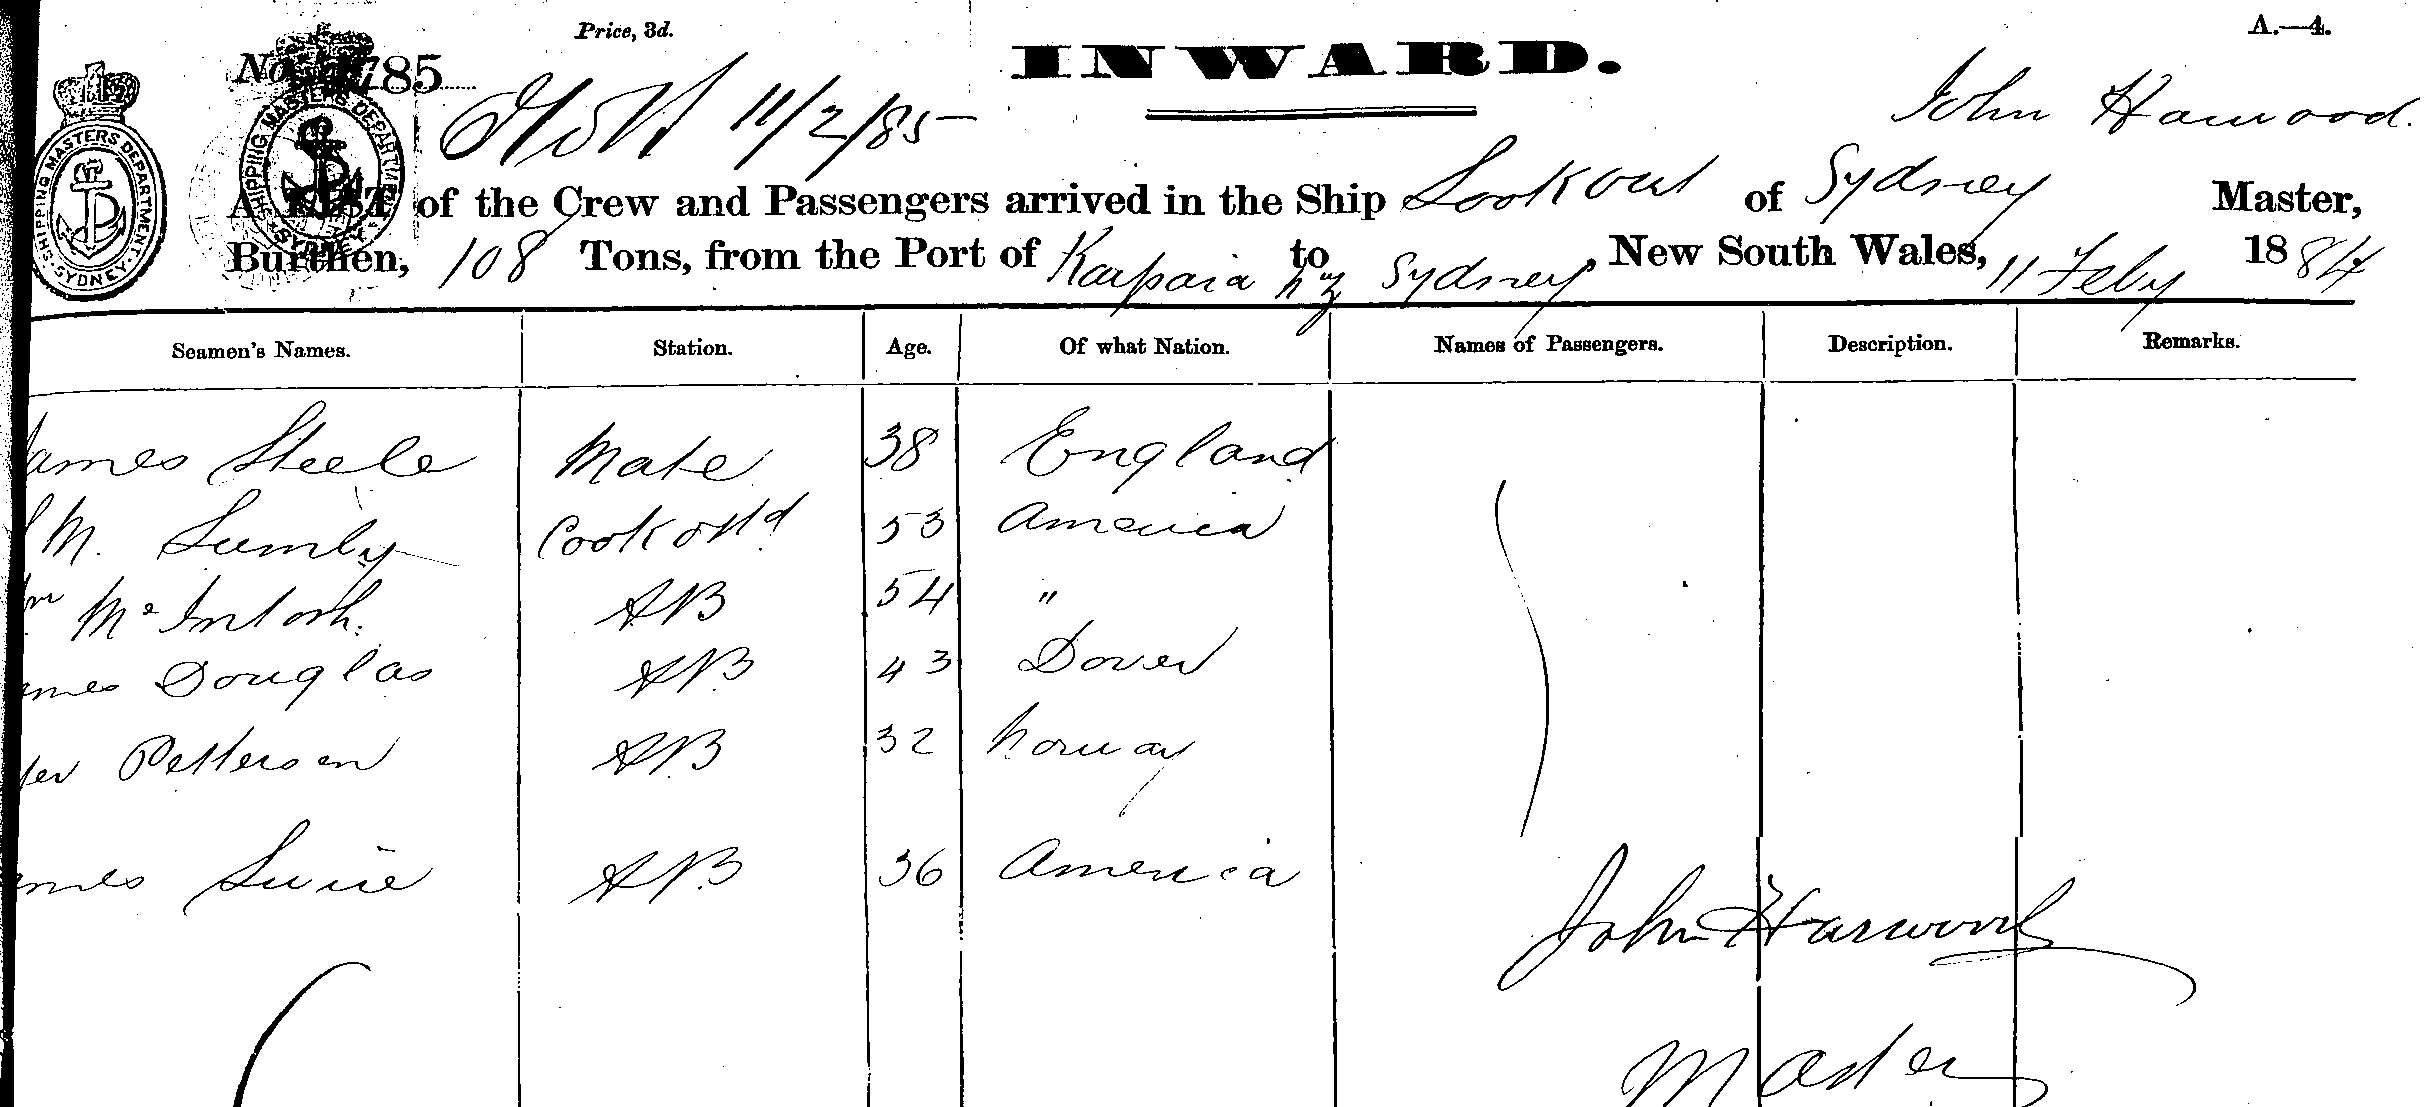 Price, 3d.
A.—4.
INWARD.
No. 785
11/2/85
John Harwood.
SHIPPING MASTERS DEPARTMENT. SYDNEY.
SHIPPING MASTERS DEPARTMENT SYDNEY
A LIST of the Crew and Passengers arrived in the Ship Lookout of Sydney Master,
Burthen, 108 Tons, from the Port of Kaipara to Sydney, New South Wales, 11 Feby 1884
Seamen's Names. Station. Age. Of what Nation. Names of Passengers. Description. Remarks.
James Steele Mate 38 England
M. Lumly Cook & Std 53 America
Wm McIntosh. AB 54 "
ames Douglas AB 43 Dover
ter Pettersen AB 32 Norway
ames AB 36 America
John Harwood
Master